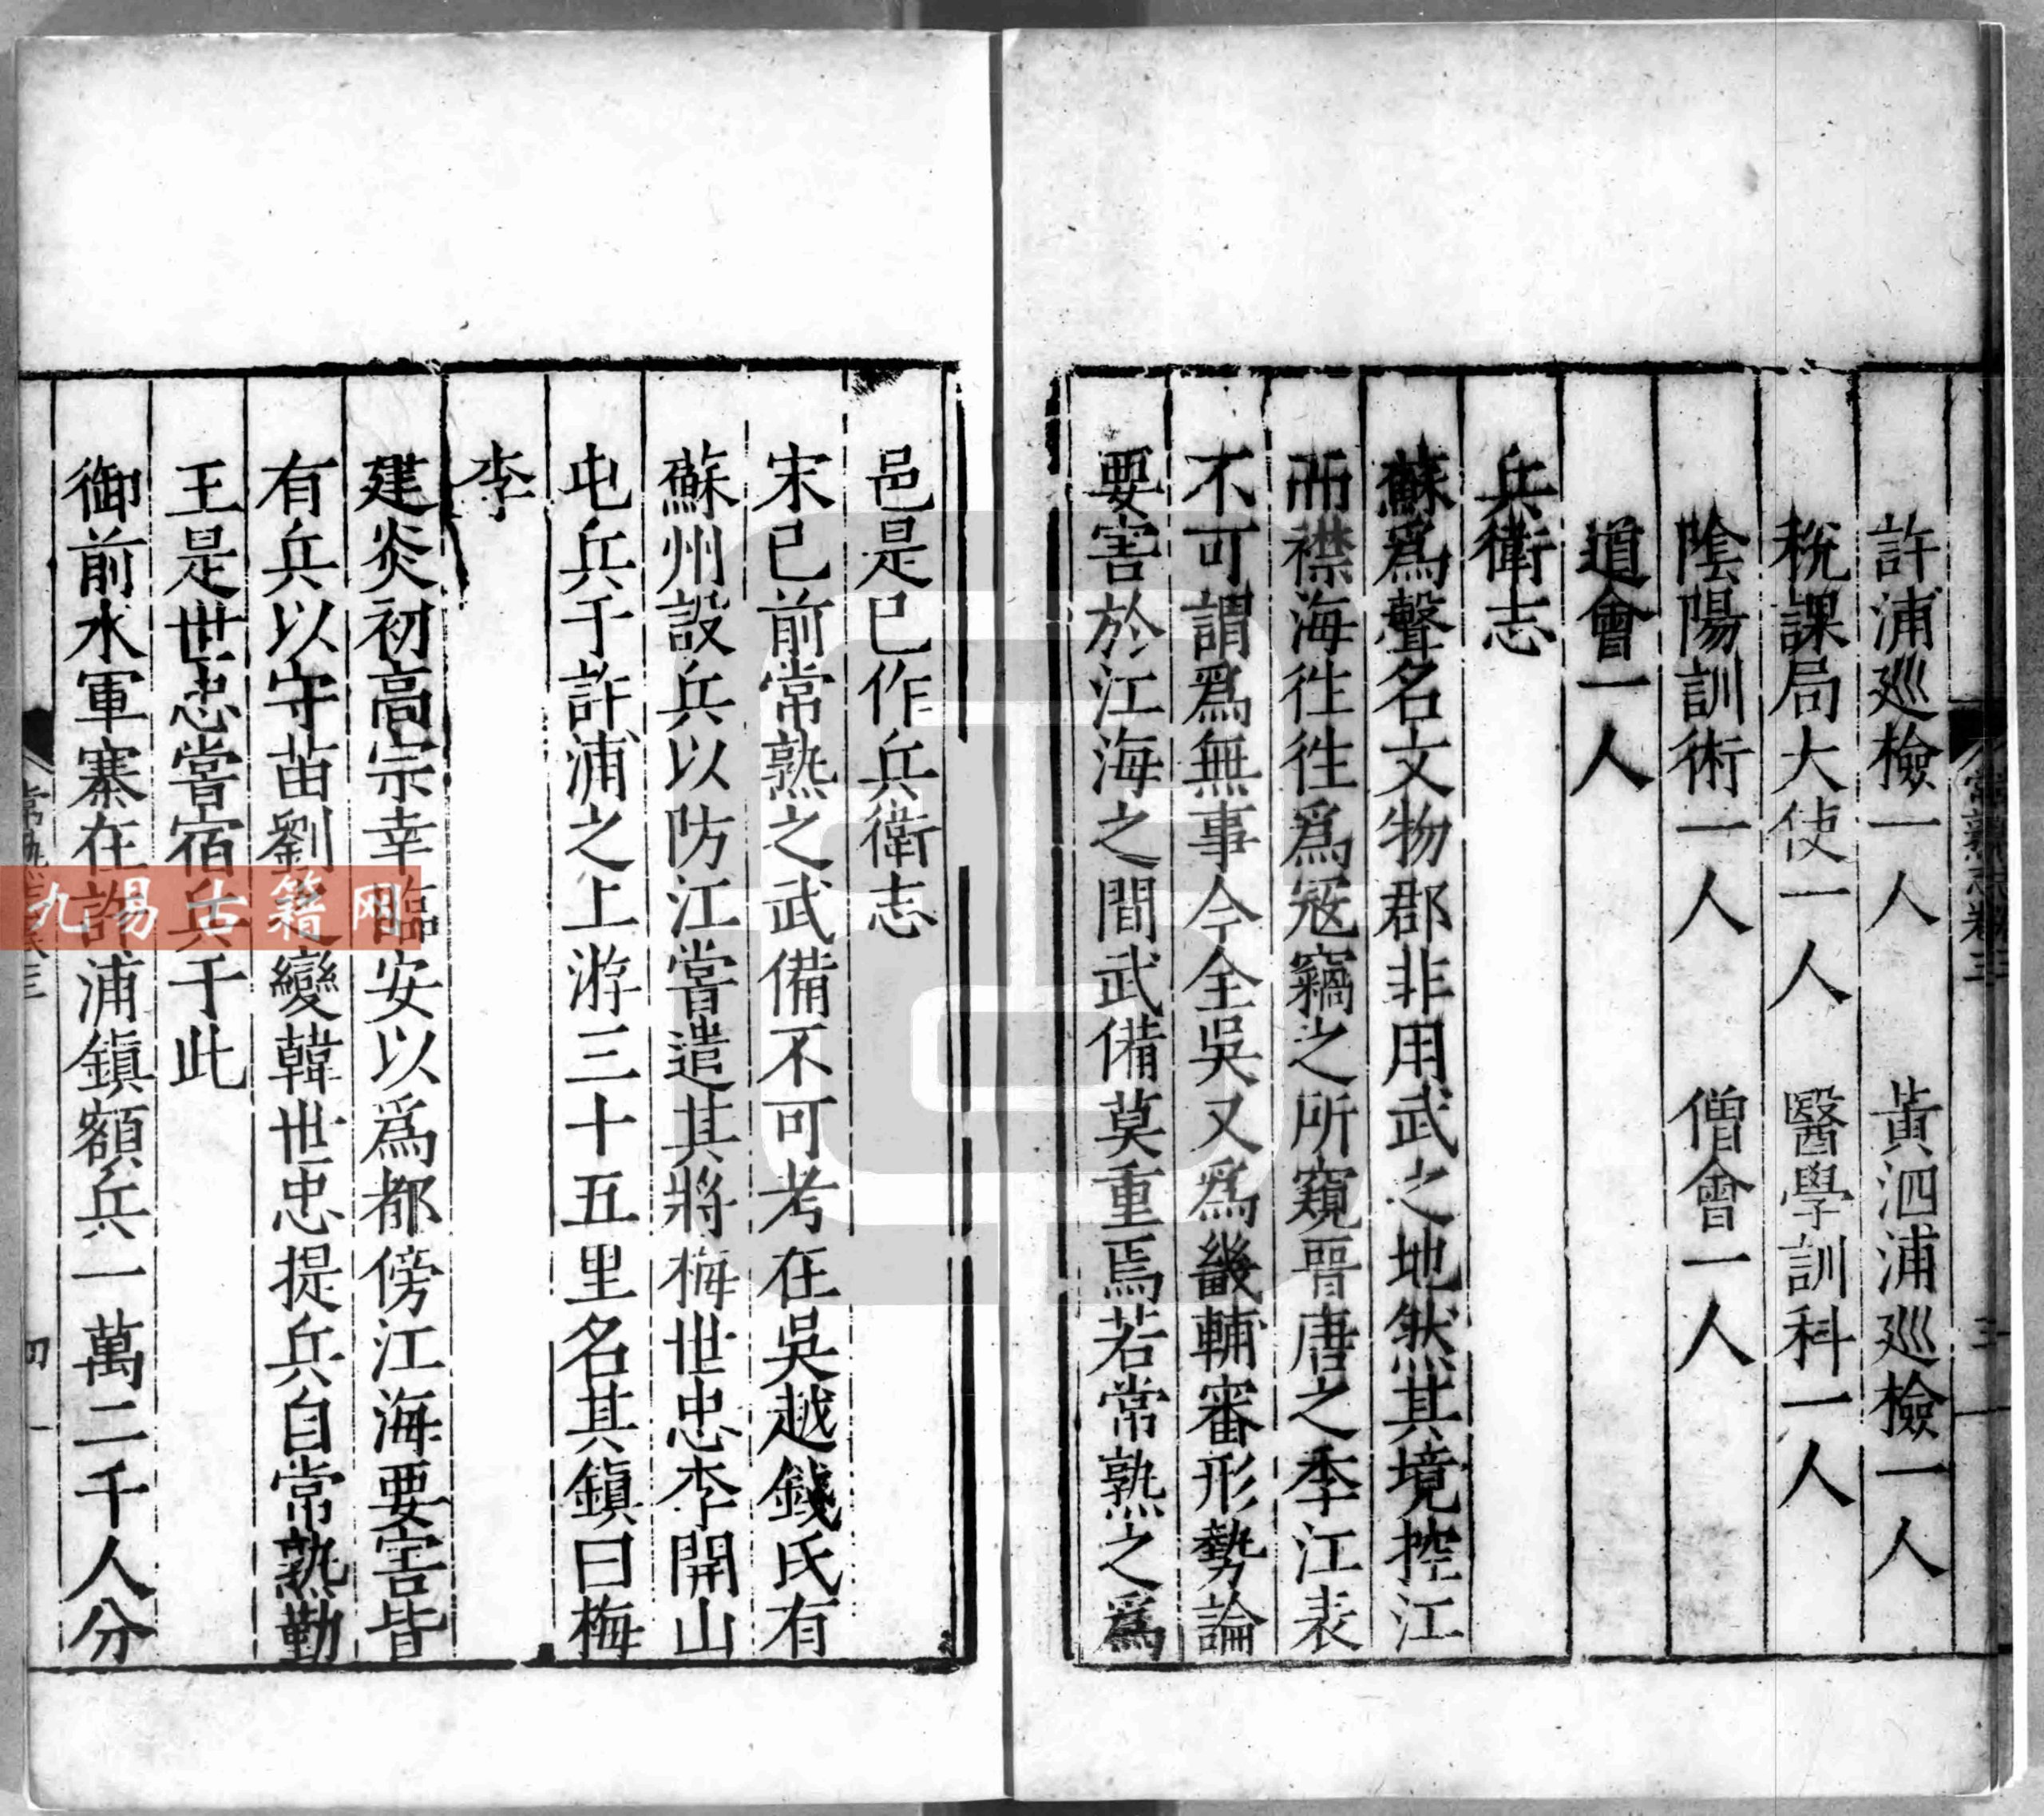 許浦廵檢一人　黃泗浦廵檢一人
稅課局大使一人　醫學訓科一人
陰陽訓術一人　僧會一人
道會一人
兵衛志
蘇爲聲名文物郡非用武之地然其境控江
而襟海徃徃爲冦竊之所窺晉唐之季江表
不可謂爲無事今全吳又爲畿輔審形勢論
要害於江海之間武備莫重焉若常熟之爲
邑是已作兵衛志
宋已前常熟之武備不可考在吳越錢氏有
蘇州設兵以防江嘗遣其將梅世忠李開山
屯兵于許浦之上游三十五里名其鎮曰梅
李
建炎初高宗幸臨安以爲都傍江海要害皆
有兵以守苗劉之變韓世忠提兵自常熟勤
王是世忠嘗宿兵于此
御前水軍寨在許浦鎮額兵一萬二千人分
常熟志卷三
三
四
九易古籍网